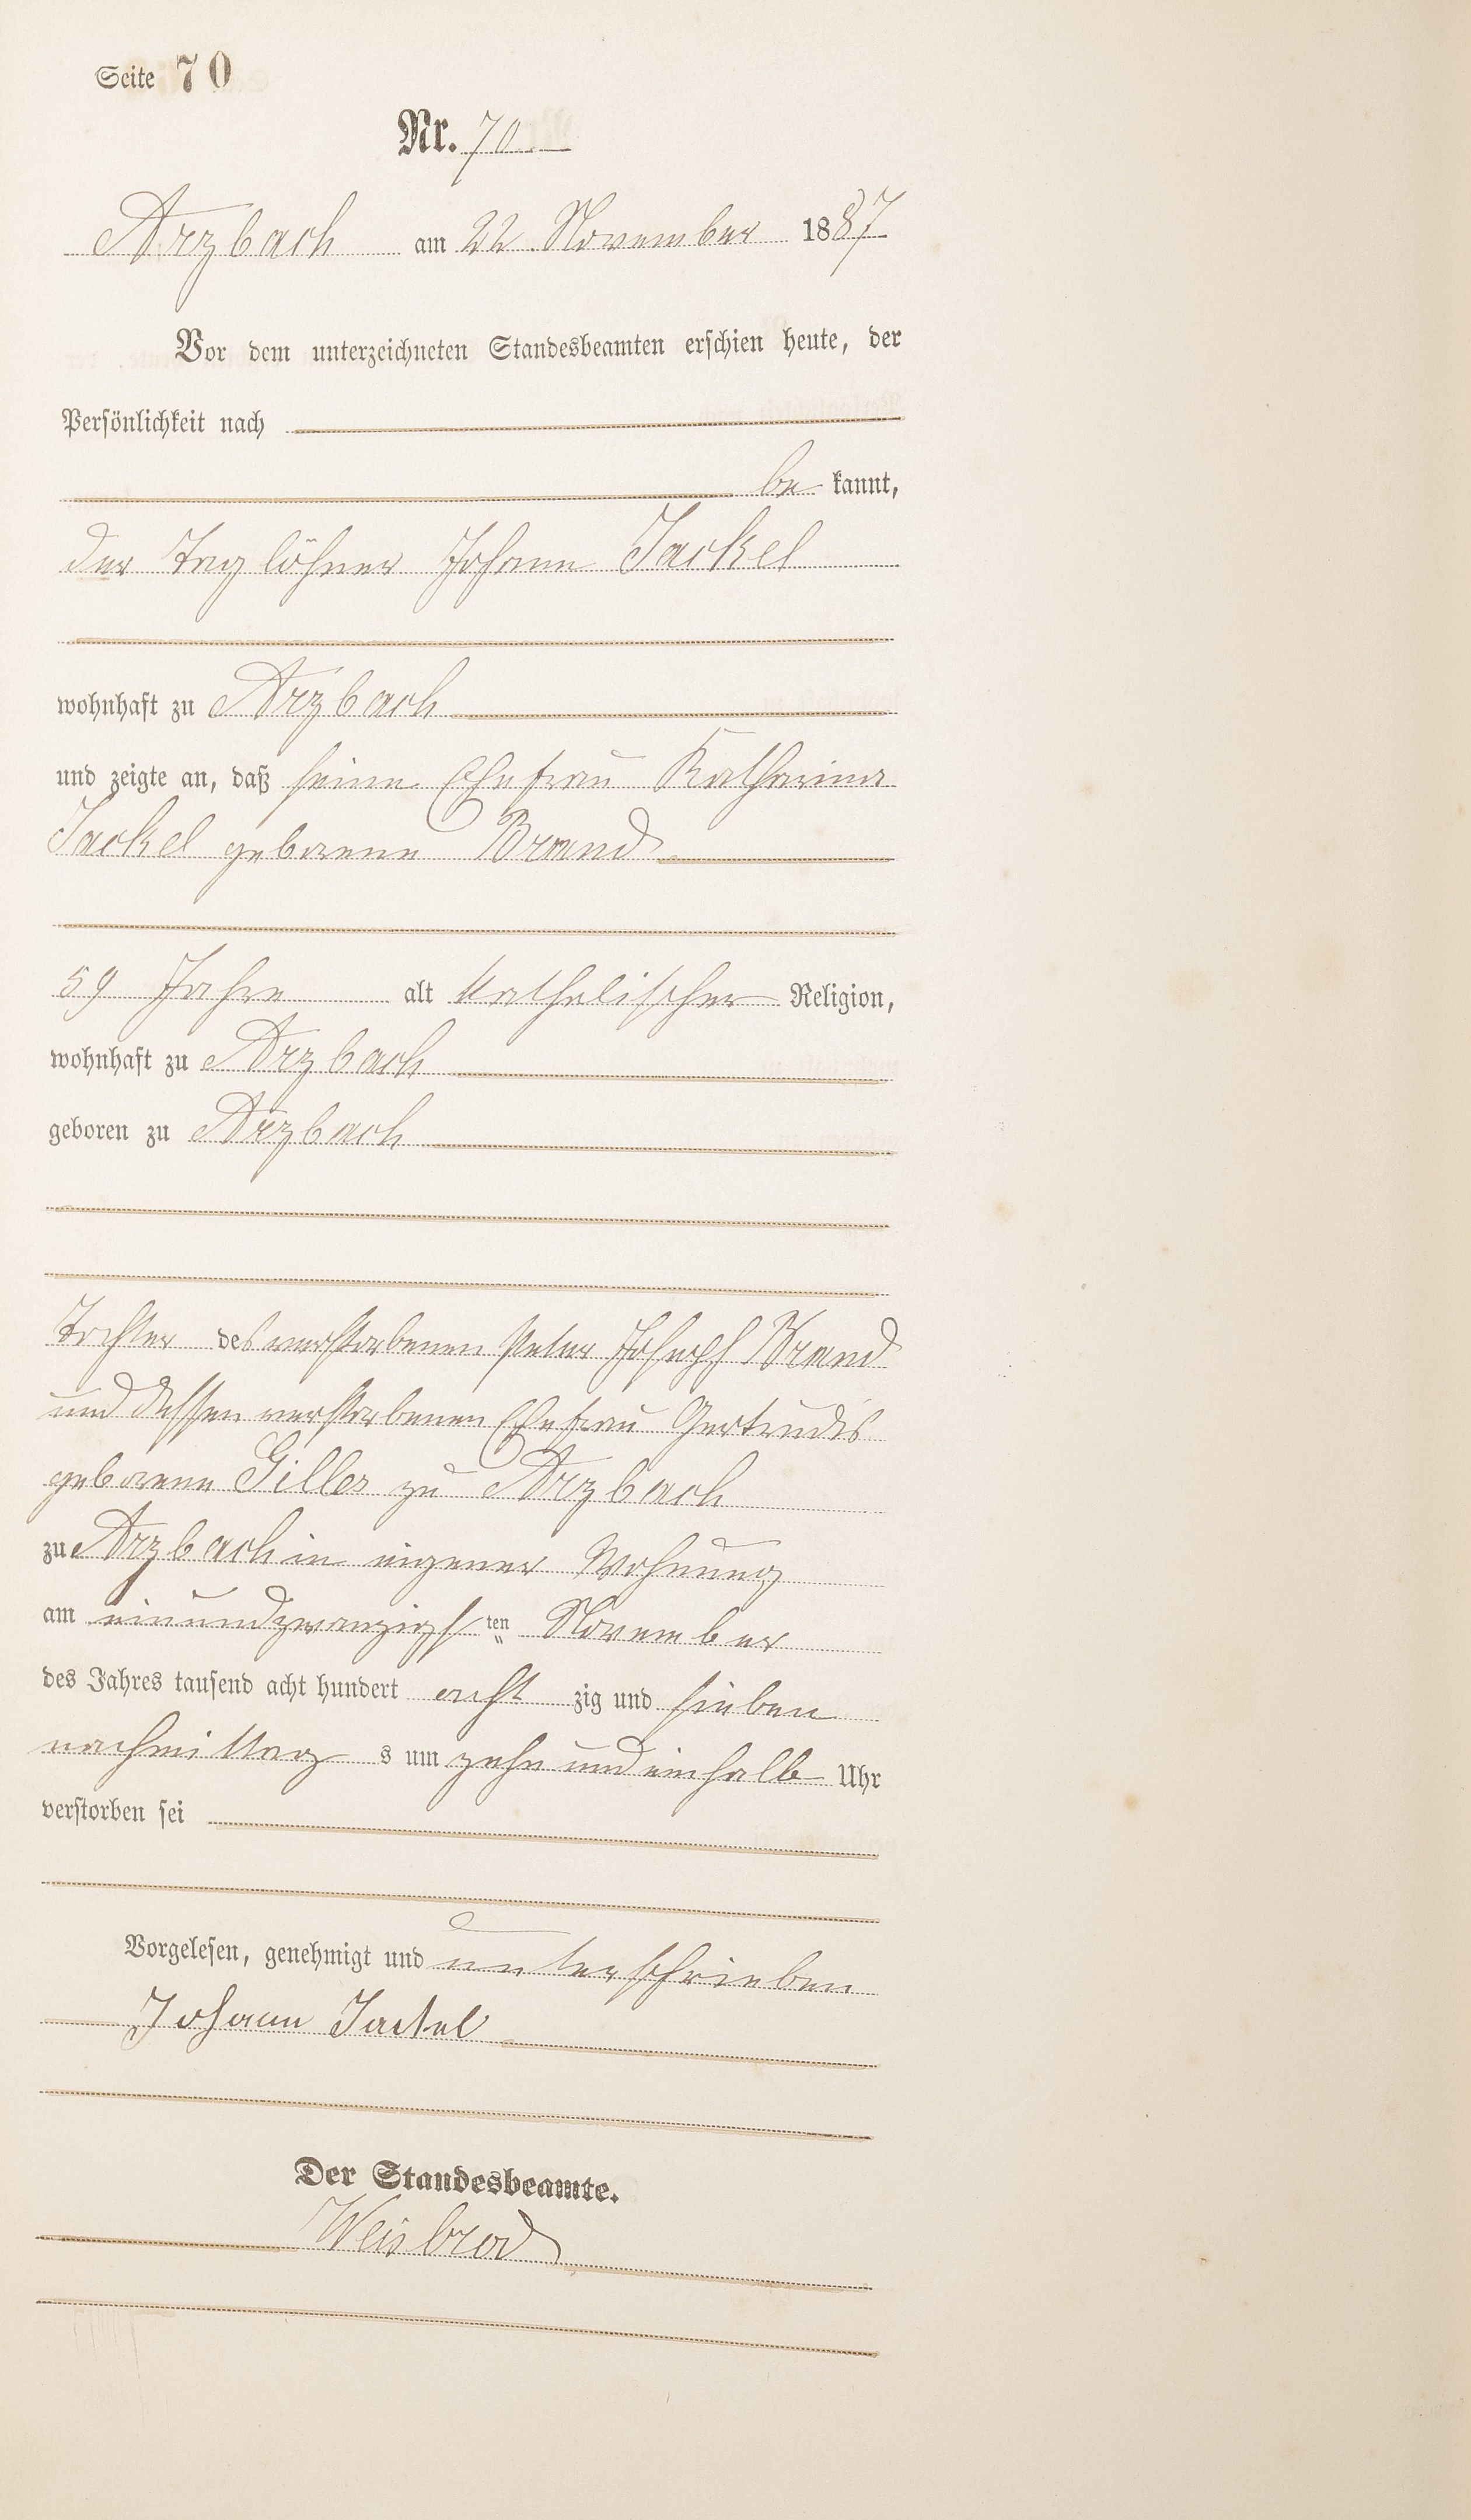 Seite 70
Nr. 70
Arzbach am 22 November 1887
Vor dem unterzeichneten Standesbeamten erschien heute, der
Persönlichkeit nach
be kannt,
der Taglöhner Johann Jackel
wohnhaft zu Arzbach
und zeigte an, daß seine Ehefrau Katharina
Jackel geborene Brand
59 Jahre alt katholischer Religion,
wohnhaft zu Arzbach
geboren zu Arzbach
Tochter des verstorbenen Peter Joseph Brand
und dessen verstorbenen Ehefrau Gertrudis
geborene Giller zu Arzbach
zu Arzbach in eigener Wohnung
am einundzwanzigs ten November
des Jahres tausend acht hundert acht zig und sieben
nachmittag s um zehn und einhalb Uhr
verstorben sei
Vorgelesen, genehmigt und unterschrieben
Johann Jackel
Der Standesbeamte.
Weisbrod